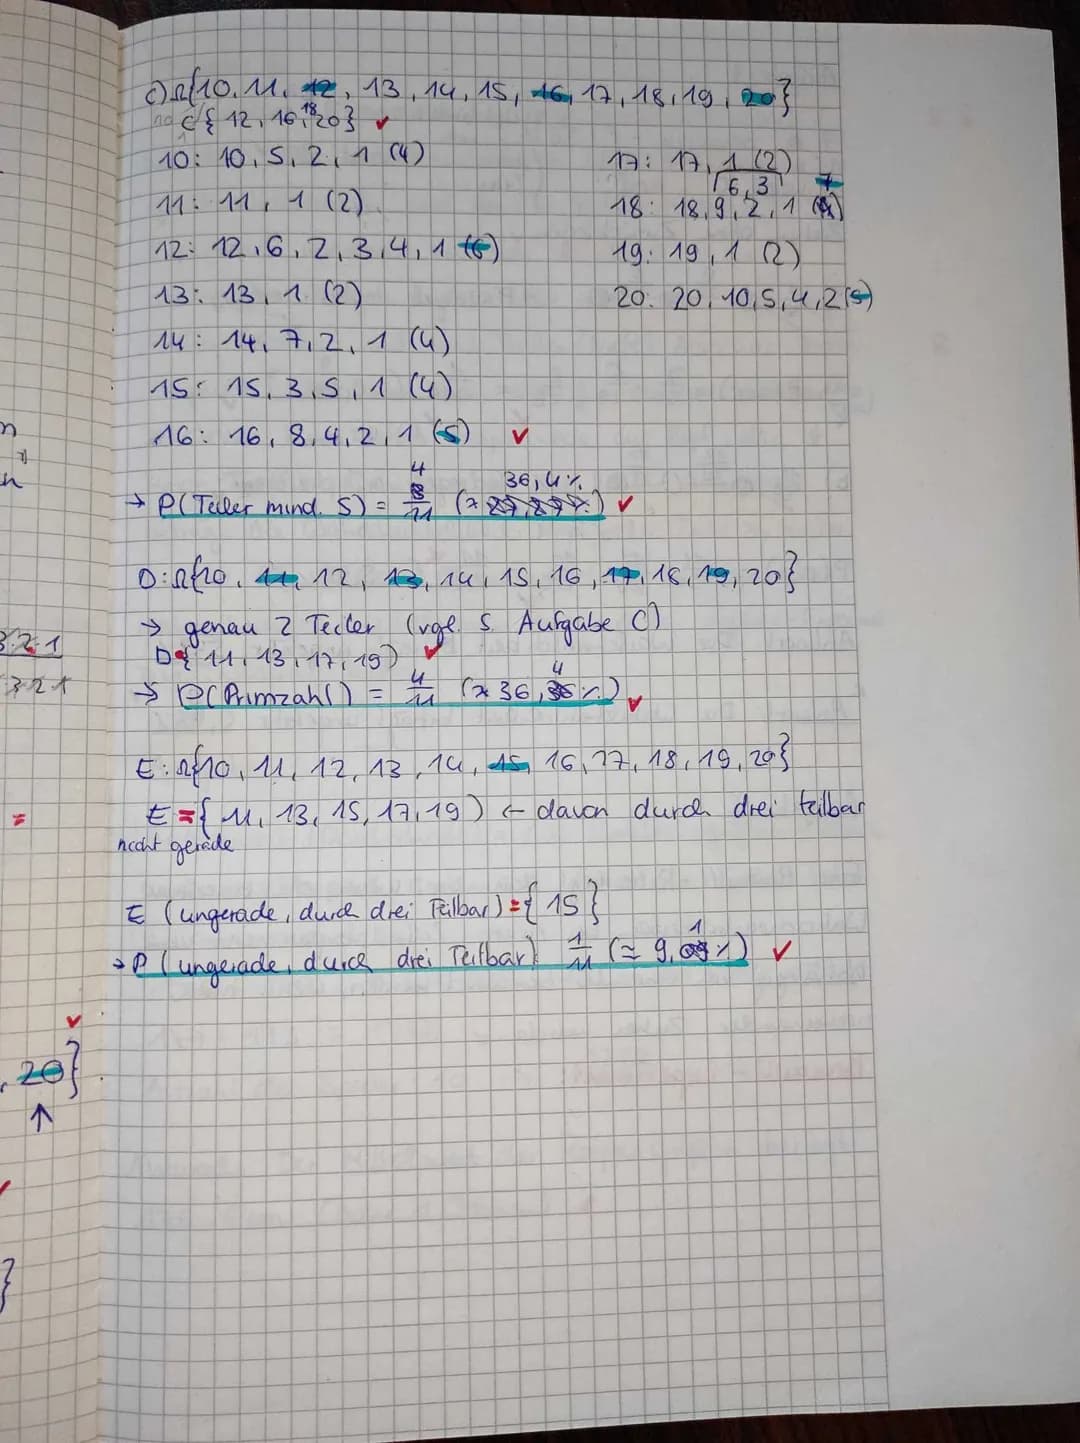 C) Ω{10, 11, 12, 13, 14, 15, 16, 17, 18, 19, 20}
C{ 12, 16, 18, 20} ✓
10: 10, 5, 2, 1 (4)
11: 11, 1 (2)
12: 12, 6, 2, 3, 4, 1 (6)
13: 13, 1 (2)
14: 14, 7, 2, 1 (4)
15: 15, 3, 5, 1 (4)
16: 16, 8, 4, 2, 1 (5) ✓
17: 17, 1 (2)
6, 3
18: 18, 9, 2, 1
19: 19, 1 (2)
20: 20, 10, 5, 4, 2 (5)
→ P(Teiler mind. 5) = 4/11 (≈ 36,4%) ✓
D: Ω{10, 11, 12, 13, 14, 15, 16, 17, 18, 19, 20}
→ genau 2 Teiler (vgl. S. Aufgabe C)
D{ 11, 13, 17, 19) ✓
→ P(Primzahl) = 4/11 (≈ 36,4%) ✓
E: Ω{10, 11, 12, 13, 14, 15, 16, 17, 18, 19, 20}
E = { 11, 13, 15, 17, 19) ← davon durch drei teilbar
nicht gerade
E (ungerade, durch drei Teilbar) = { 15 }
→ P (ungerade, durch drei Teilbar) 1/11 (≈ 9,1%) ✓
3·2·1
3 2 1
=
✓
, 20}
↑
}